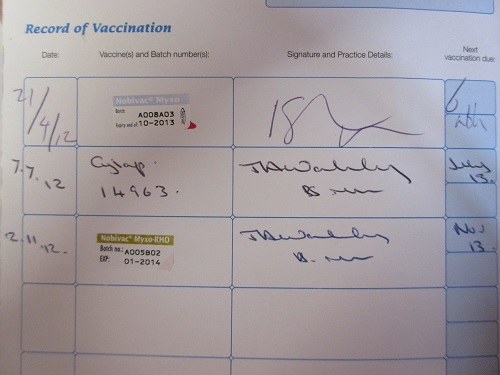 Record of Vaccination
Date: Vaccine(s) and Batch number(s): Signature and Practice Details: Next
vaccination due:
21/4/12
Nobivac® Myxo
Batch A008A03
Expiry end of: 10-2013
6
7.7.12
Cylap.
14963.
July
13.
2.11.12.
Nobivac® Myxo-RHD
Batch no.: A005B02
EXP: 01-2014
Nov
13